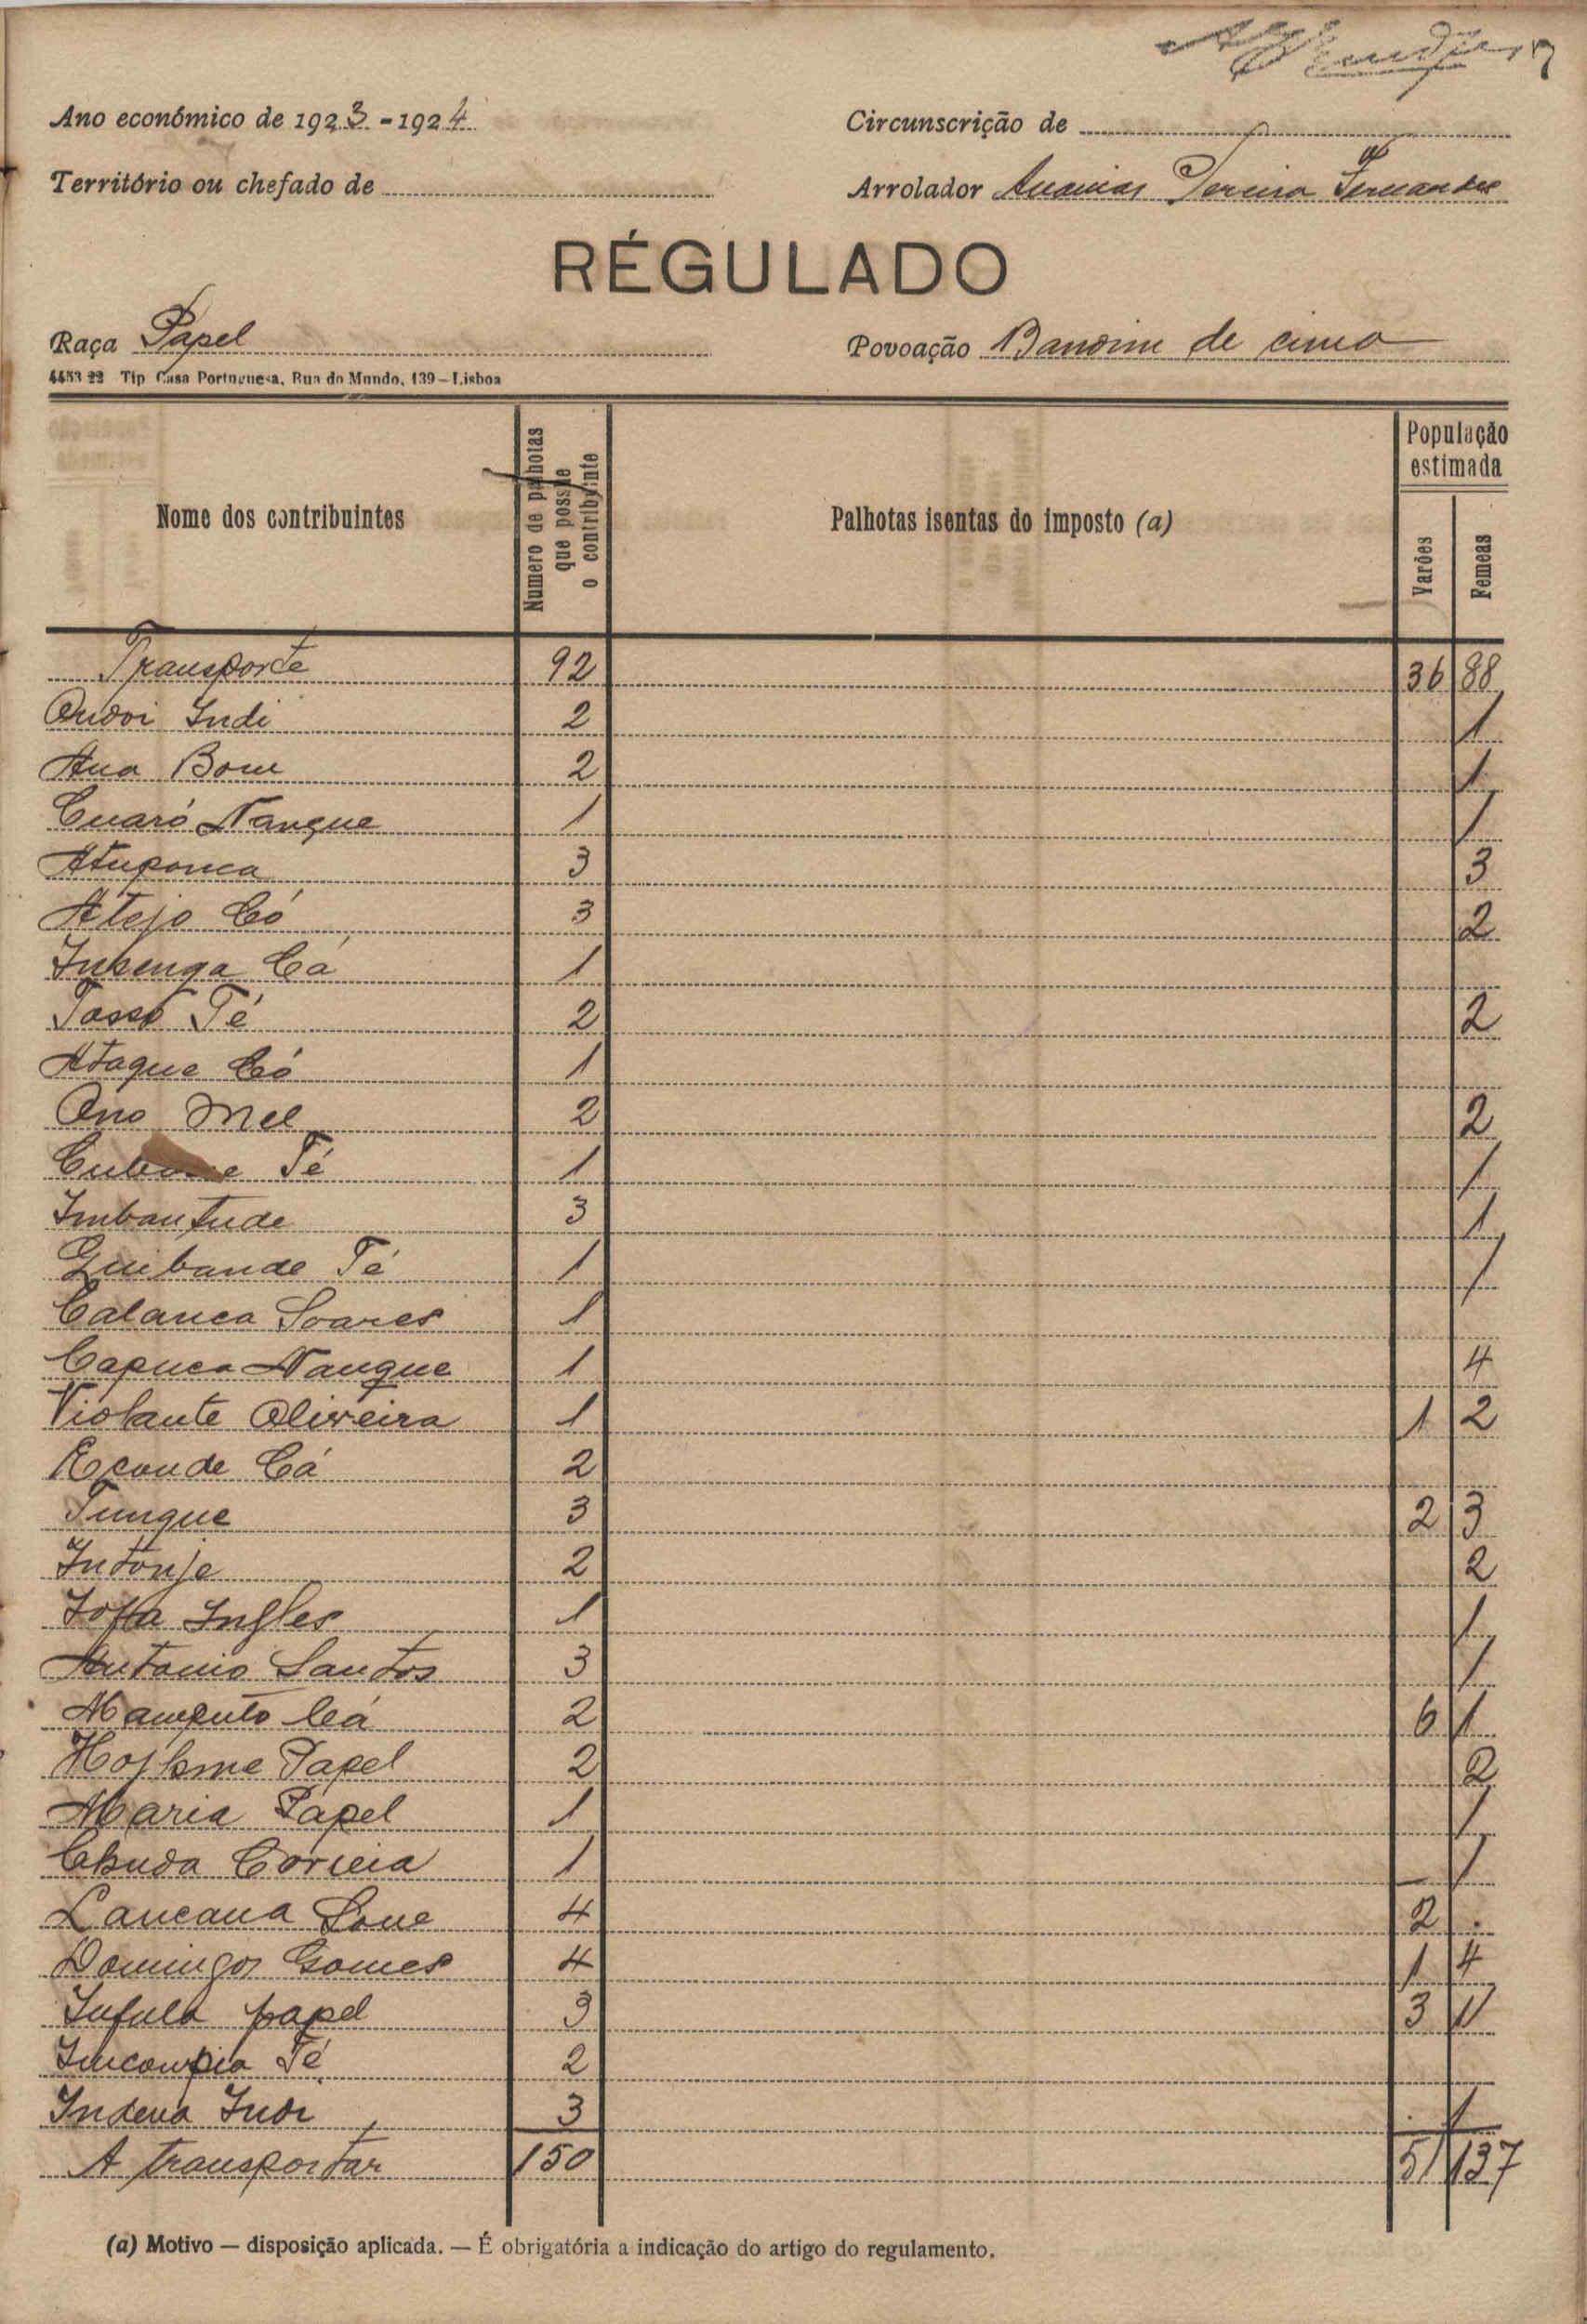 Ano económico de 1923-1924
Circunscrição de
Território ou chefado de
Arrolador Ananias Pereira Fernandes
RÉGULADO
Raça Papel
Povoação Bandim de cima
4453 22 Tip Casa Portuguesa, Rua do Mundo, 139-Lisboa
Nome dos contribuintes
Numero de palhotas que possue o contribuinte
Palhotas isentas do imposto (a)
População estimada
Varões
Femeas
Transporte 92 36 88
Ondoi Indi 2 1
Ana Bom 2 1
Cuaró Nanque 1 1
Atuponca 3 3
Atejo Có 3 2
Insenga Cá 1
Tasso Té 2 2
Ataque Có 1
Ono Mel 2 2
Té 1 1
Imbantude 3 1
Quibande Té 1 1
Calanca Soares 1
Capuca Nanque 1 4
Violante Oliveira 1 1 2
Econde Cá 2
Tungue 3 2 3
Intonje 2 2
Ingles 1 1
Antonio Santos 3 1
Mamputo Cá 2 6 1
Papel 2 2
Maria Papel 1 1
Correia 1 1
Lancana Sone 4 2
Domingos Gomes 4 1 4
Infula papel 3 3 11
Incompia Té 2
Indena Indi 3 1
A transportar 150 51 137
(a) Motivo — disposição aplicada. — É obrigatória a indicação do artigo do regulamento.